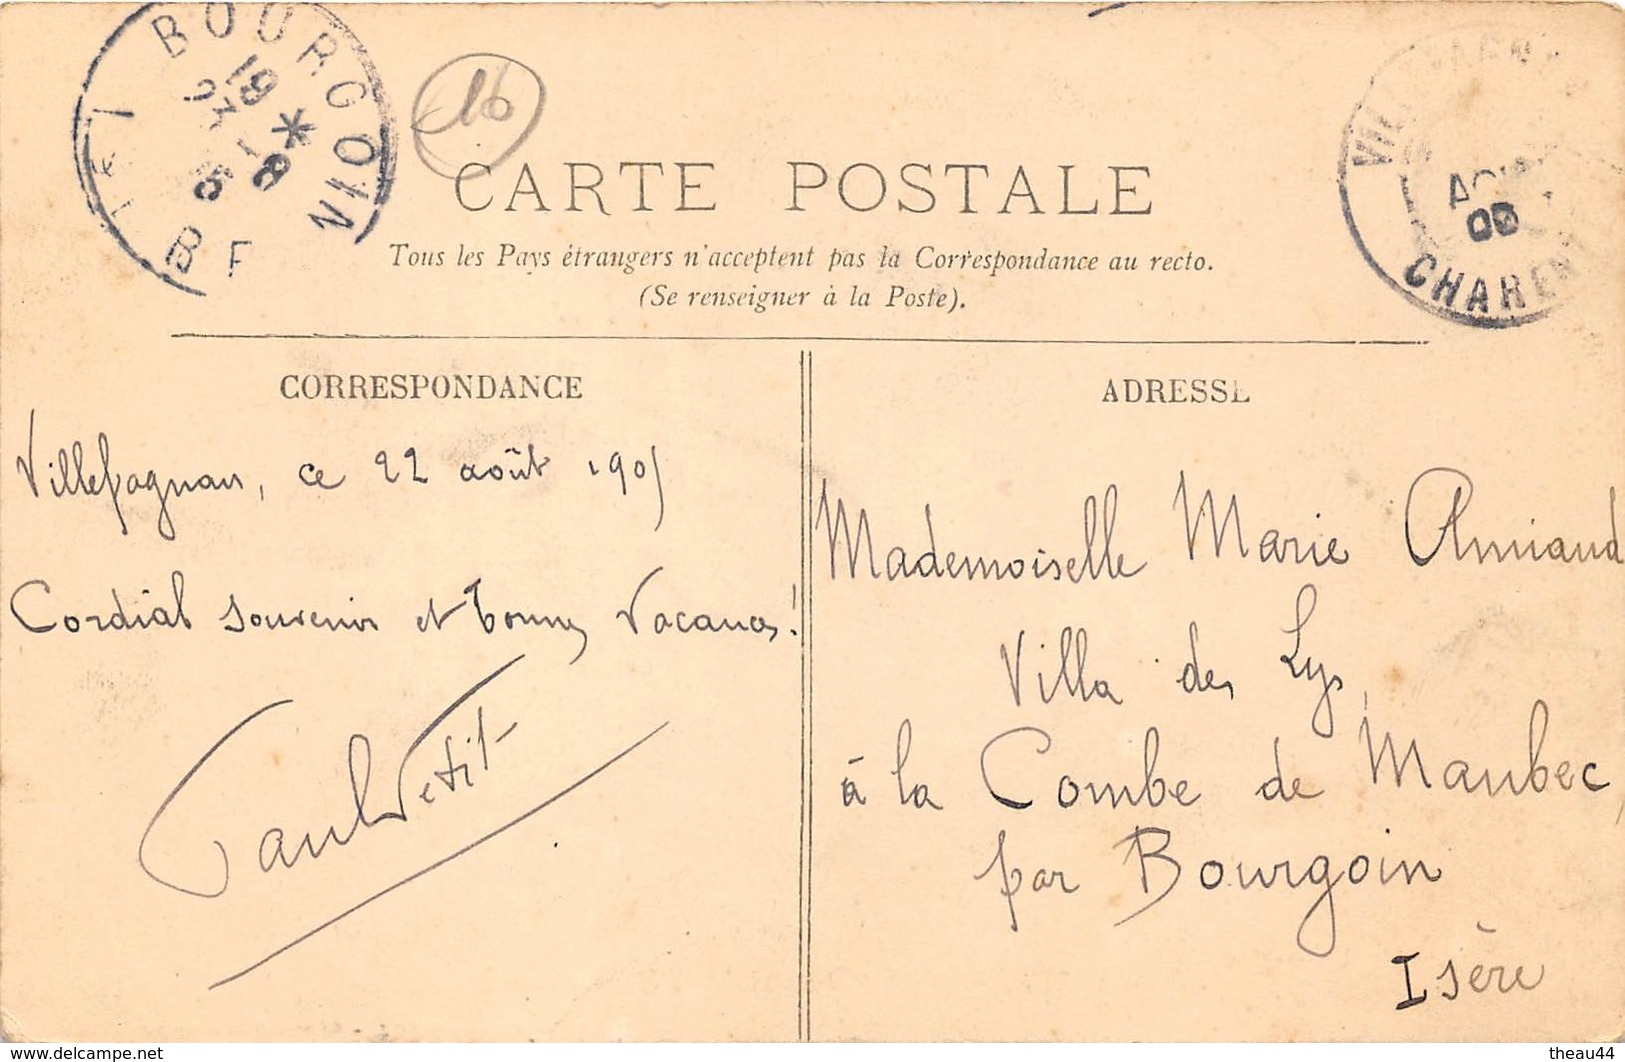 BOURGOIN
16
CARTE POSTALE
Tous les Pays étrangers n'acceptent pas la Correspondance au recto.
(Se renseigner à la Poste).
CORRESPONDANCE
Villefagnan, ce 22 août 1905
Cordial souvenir et bonnes vacances!
Paul Petit
ADRESSE
Mademoiselle Marie Amiaud
Villa des Lys,
à la Combe de Maubec,
par Bourgoin
Isère
www.delcampe.net
theau44